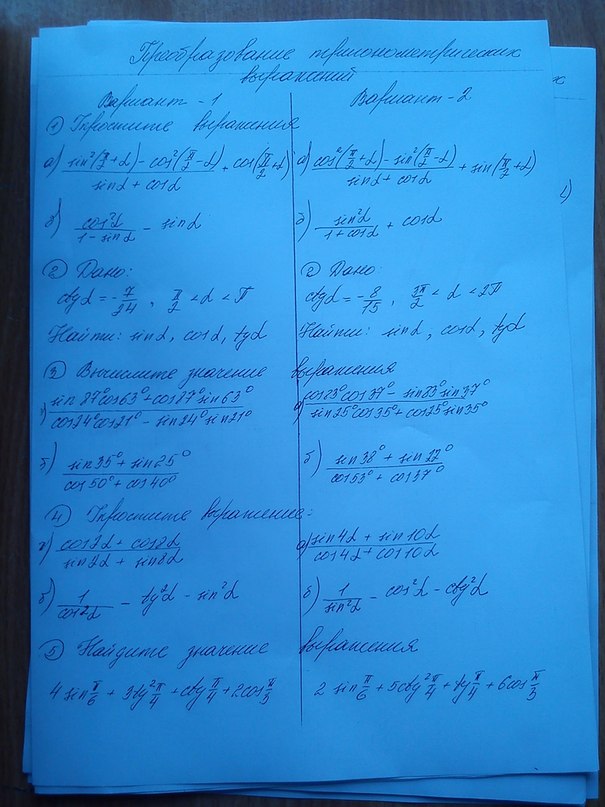 Преобразование тригонометрических
выражений
Вариант - 1
① Упростите выражения
а) (sin²(π/2+α) - cos²(π/2-α))/(sinα + cosα) + cos(π/2+α)
б) cos²α/(1 - sinα) - sinα
② Дано:
ctgα = -7/24, π/2 < α < π
Найти: sinα, cosα, tgα
③ Вычислите значение выражения
а) (sin87°cos63° + cos87°sin63°)/(cos24°cos21° - sin24°sin21°)
б) (sin35° + sin25°)/(cos50° + cos40°)
④ Упростите выражение:
а) (cos2α + cos8α)/(sin2α + sin8α)
б) 1/cos²α - tg²α - sin²α
⑤ Найдите значение выражения
4 sin π/6 + 3tg² π/4 + ctg π/4 + 2cos π/3
Вариант - 2
а) (cos²(π/2+α) - sin²(π/2-α))/(sinα + cosα) + sin(π/2+α)
б) sin²α/(1 + cosα) + cosα
② Дано:
ctgα = -8/15, 3π/2 < α < 2π
Найти: sinα, cosα, tgα
а) (cos23°cos37° - sin83°sin37°)/(sin25°cos35° + cos25°sin35°)
б) (sin38° + sin22°)/(cos53° + cos37°)
а) (sin4α + sin10α)/(cos4α + cos10α)
б) 1/sin²α - cos²α - ctg²α
2 sin π/6 + 5ctg² π/4 + tg π/4 + 6cos π/3